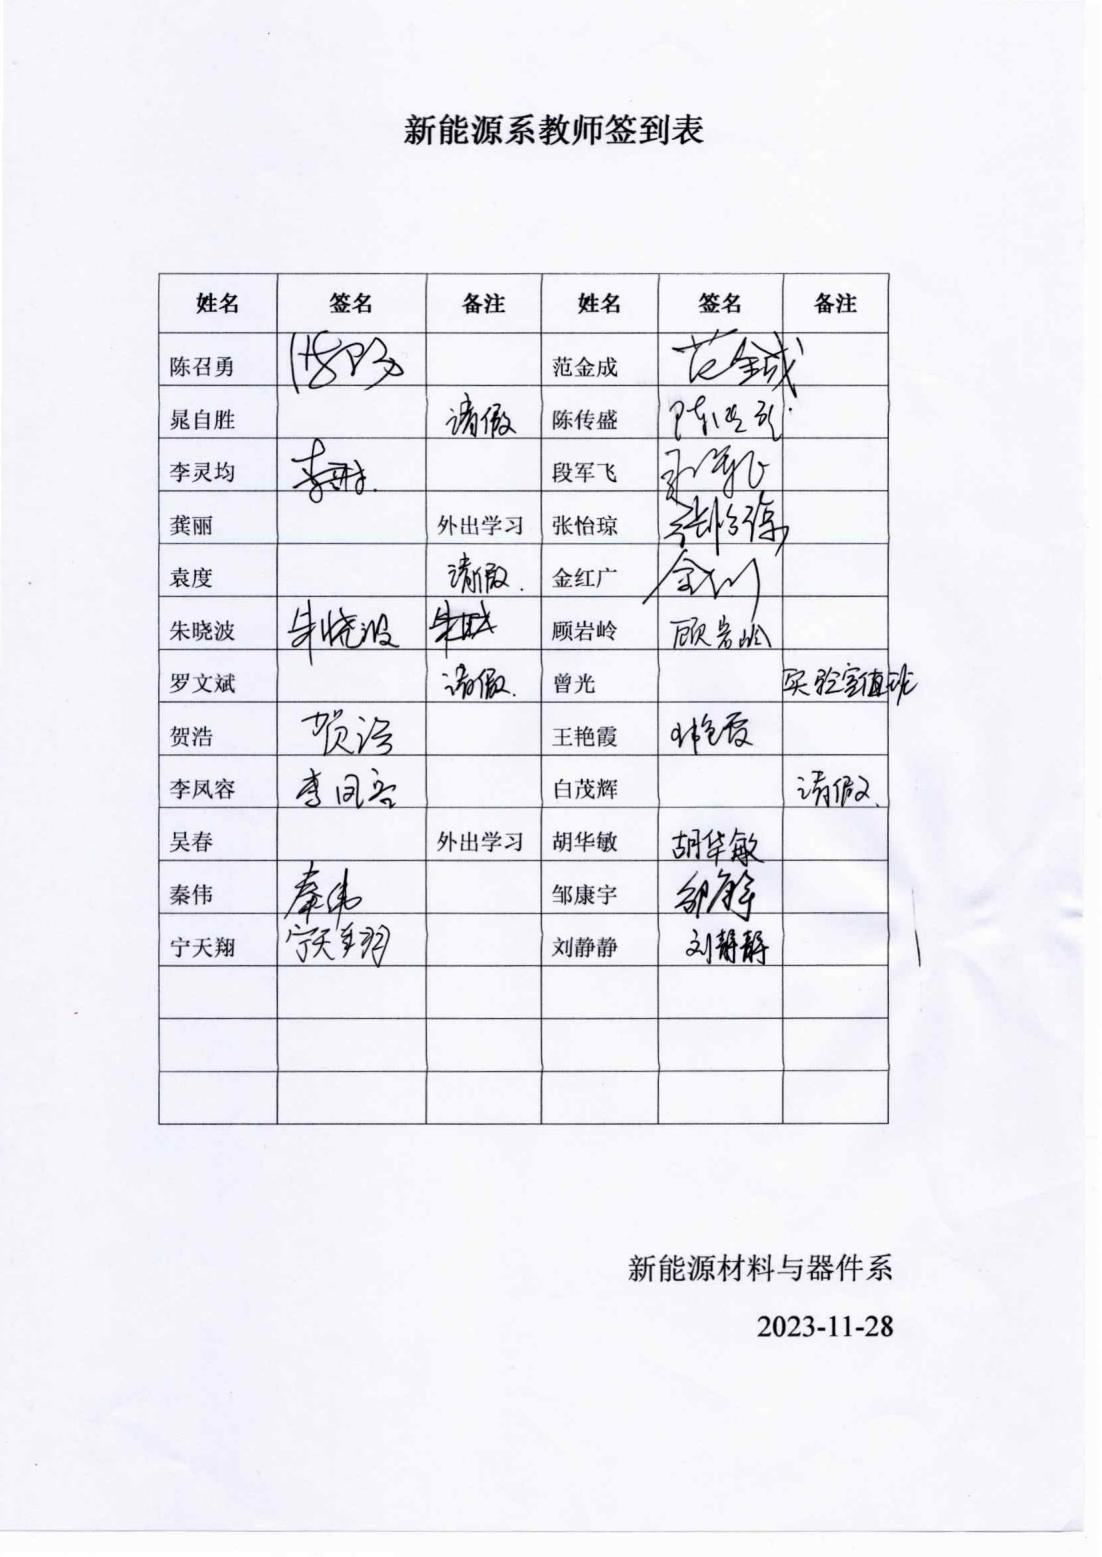 新能源系教师签到表
姓名 签名 备注 姓名 签名 备注
陈召勇 范金成 范金成
晁自胜 请假 陈传盛
李灵均 段军飞
龚丽 外出学习 张怡琼 张怡琼
袁度 请假. 金红广
朱晓波 朱晓波 顾岩岭 顾岩岭
罗文斌 请假. 曾光 实验室值班
贺浩 贺浩 王艳霞 王艳霞
李凤容 李凤容 白茂辉 请假.
吴春 外出学习 胡华敏 胡华敏
秦伟 秦伟 邹康宇
宁天翔 宁天翔 刘静静 刘静静
新能源材料与器件系
2023-11-28